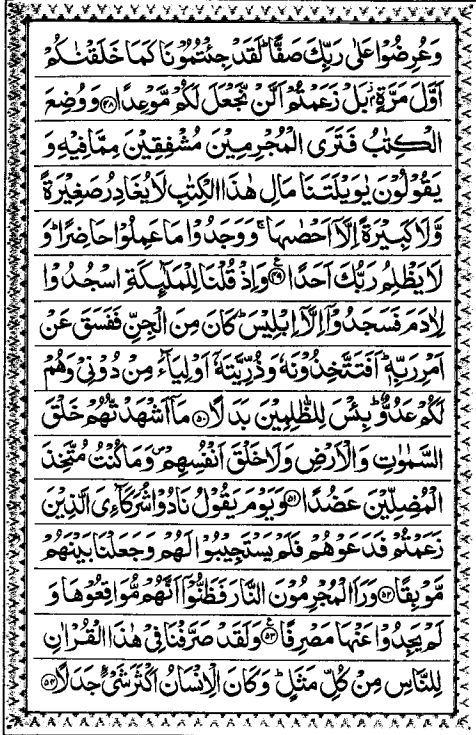 وَعُرِضُوْا عَلٰى رَبِّكَ صَفًّا ؕ لَقَدْ جِئْتُمُوْنَا كَمَا خَلَقْنٰكُمْ
اَوَّلَ مَرَّةٍۭ ز بَلْ زَعَمْتُمْ اَلَّنْ نَّجْعَلَ لَكُمْ مَّوْعِدًا ﴿۴۸﴾ وَوُضِعَ
الْكِتٰبُ فَتَرَى الْمُجْرِمِيْنَ مُشْفِقِيْنَ مِمَّا فِيْهِ وَ
يَقُوْلُوْنَ يٰوَيْلَتَنَا مَالِ هٰذَا الْكِتٰبِ لَا يُغَادِرُ صَغِيْرَةً
وَّلَا كَبِيْرَةً اِلَّاۤ اَحْصٰىهَا ۚ وَوَجَدُوْا مَا عَمِلُوْا حَاضِرًا ؕ وَ
لَا يَظْلِمُ رَبُّكَ اَحَدًا ﴿۴۹﴾ ع وَاِذْ قُلْنَا لِلْمَلٰٓئِكَةِ اسْجُدُوْا
لِاٰدَمَ فَسَجَدُوْۤا اِلَّاۤ اِبْلِيْسَ ؕ كَانَ مِنَ الْجِنِّ فَفَسَقَ عَنْ
اَمْرِ رَبِّهٖ ؕ اَفَتَتَّخِذُوْنَهٗ وَذُرِّيَّتَهٗۤ اَوْلِيَآءَ مِنْ دُوْنِيْ وَهُمْ
لَكُمْ عَدُوٌّ ؕ بِئْسَ لِلظّٰلِمِيْنَ بَدَلًا ﴿۵۰﴾ مَاۤ اَشْهَدْتُّهُمْ خَلْقَ
السَّمٰوٰتِ وَالْاَرْضِ وَلَا خَلْقَ اَنْفُسِهِمْ ص وَمَا كُنْتُ مُتَّخِذَ
الْمُضِلِّيْنَ عَضُدًا ﴿۵۱﴾ وَيَوْمَ يَقُوْلُ نَادُوْا شُرَكَآءِيَ الَّذِيْنَ
زَعَمْتُمْ فَدَعَوْهُمْ فَلَمْ يَسْتَجِيْبُوْا لَهُمْ وَجَعَلْنَا بَيْنَهُمْ
مَّوْبِقًا ﴿۵۲﴾ وَرَاَ الْمُجْرِمُوْنَ النَّارَ فَظَنُّوْۤا اَنَّهُمْ مُّوَاقِعُوْهَا وَ
لَمْ يَجِدُوْا عَنْهَا مَصْرِفًا ﴿۵۳﴾ ع وَلَقَدْ صَرَّفْنَا فِيْ هٰذَا الْقُرْاٰنِ
لِلنَّاسِ مِنْ كُلِّ مَثَلٍ ؕ وَكَانَ الْاِنْسَانُ اَكْثَرَ شَيْءٍ جَدَلًا ﴿۵۴﴾